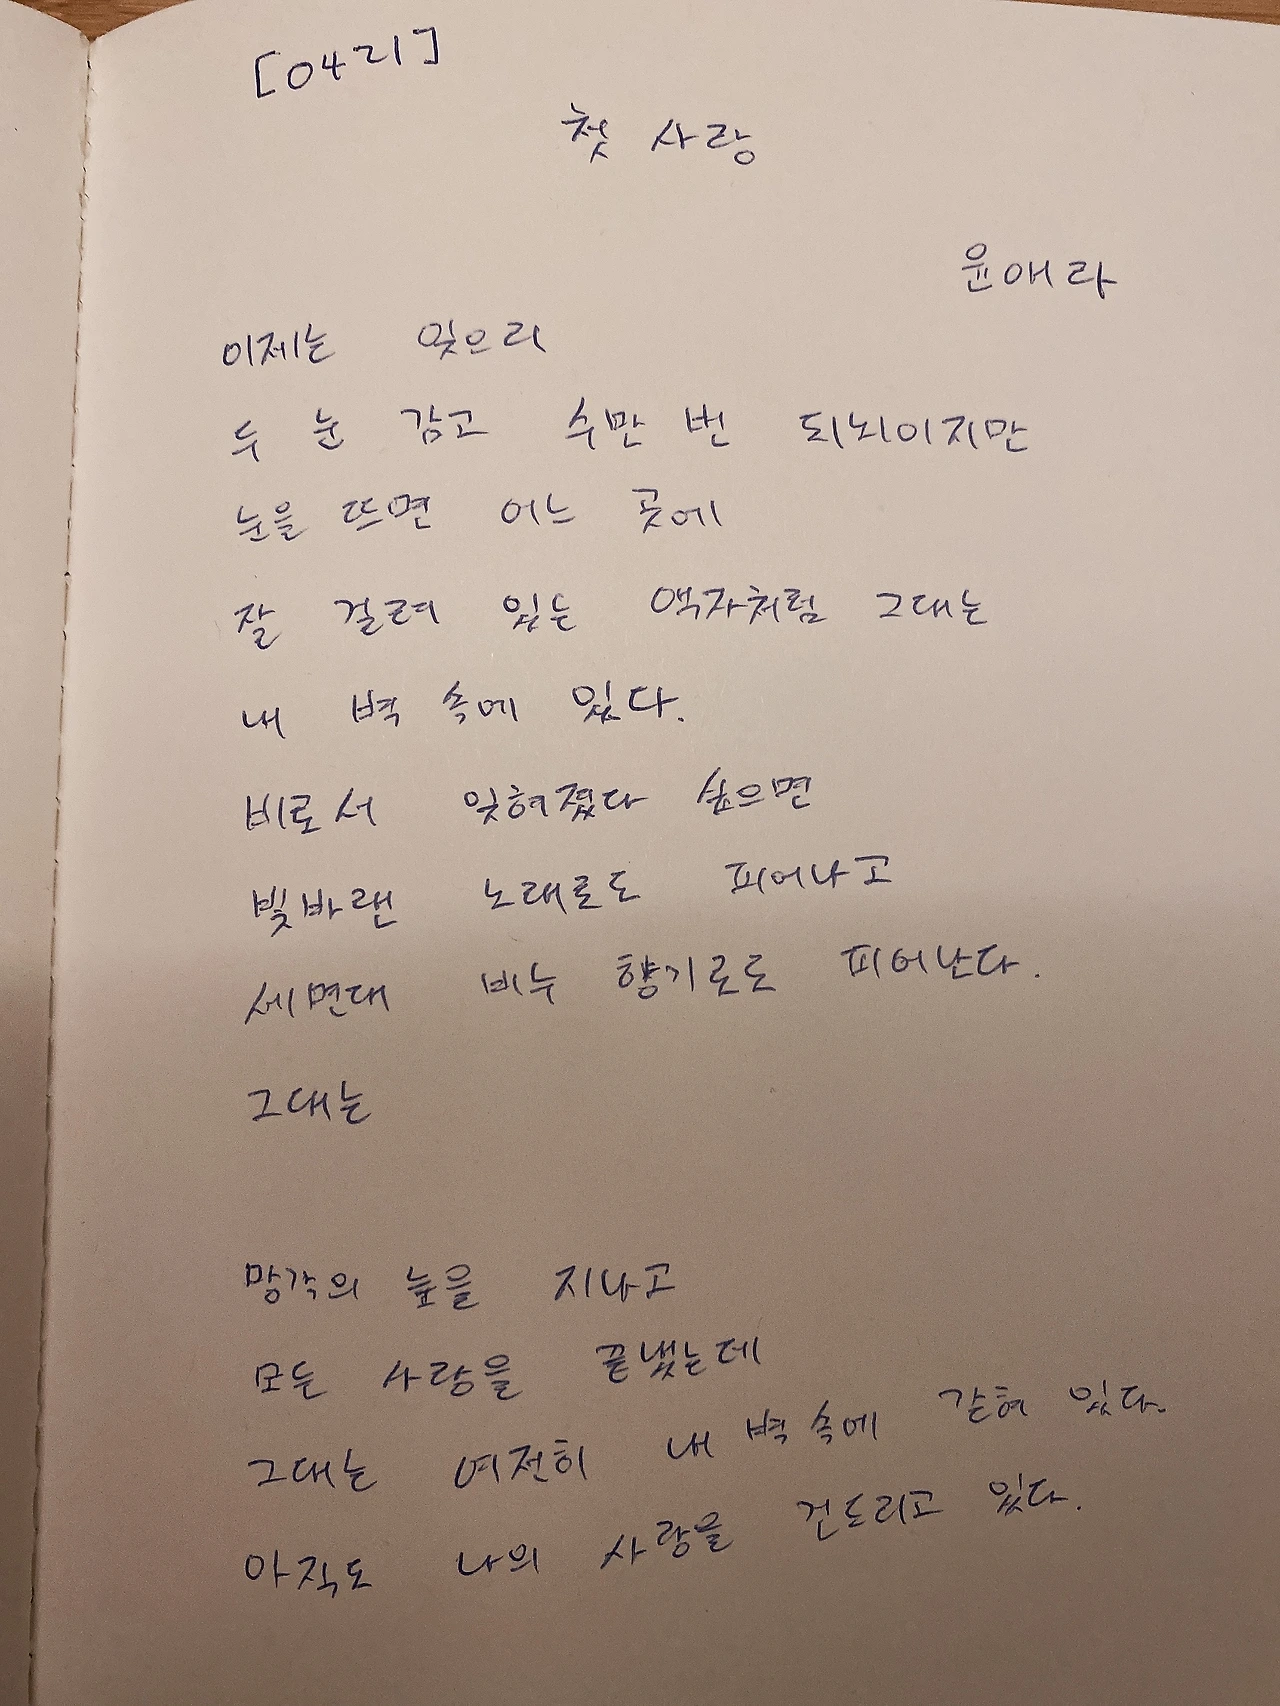 [0421]
첫 사랑
윤애라
이제는 잊으리
두 눈 감고 수만 번 되뇌이지만
눈을 뜨면 어느 곳에
잘 걸려 있는 액자처럼 그대는
내 벽 속에 있다.
비로서 잊혀졌다 싶으면
빛바랜 노래로도 피어나고
세면대 비누 향기로도 피어난다.
그대는
망각의 늪을 지나고
모든 사랑을 끝냈는데
그대는 여전히 내 벽 속에 갇혀 있다.
아직도 나의 사랑을 건드리고 있다.